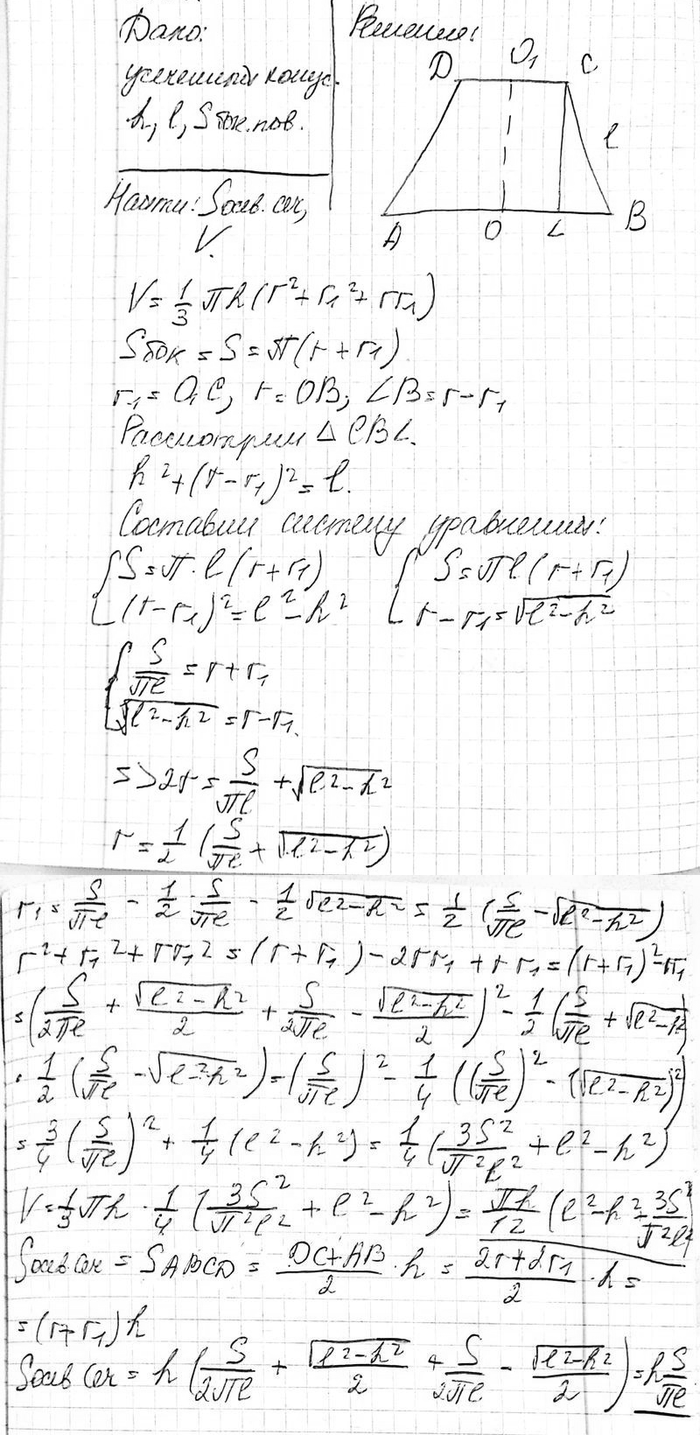 Дано:
усеченный конус.
h, l, Sбок.пов.
Найти: Sосев. сеч,
V.
Решение:
D O₁ C
l
A O L B
V = 1/3 πh (r² + r₁² + rr₁)
Sбок = S = π(r + r₁)
r₁ = O₁C, r = OB; LB = r - r₁
Рассмотрим △ CBL.
h² + (r - r₁)² = l.
Составим систему уравнений:
{ S = π·l (r + r₁) { S = πl (r + r₁)
(r - r₁)² = l² - h² r - r₁ = √(l² - h²)
{ S/πl = r + r₁
√(l² - h²) = r - r₁.
=> 2r = S/πl + √(l² - h²)
r = 1/2 (S/πl + √(l² - h²))
r₁ = S/πl - 1/2 · S/πl - 1/2 √(l² - h²) = 1/2 (S/πl - √(l² - h²))
r² + r₁² + rr₁² = (r + r₁) - 2rr₁ + rr₁ = (r + r₁)² - rr₁
= (S/2πl + √(l² - h²)/2 + S/2πl - √(l² - h²)/2)² - 1/2 (S/πl + √(l² - h²))
· 1/2 (S/πl - √(l² - h²)) = (S/πl)² - 1/4 ((S/πl)² - (√(l² - h²))²)
= 3/4 (S/πl)² + 1/4 (l² - h²) = 1/4 (3S²/π²l² + l² - h²)
V = 1/3 πh · 1/4 (3S²/π²l² + l² - h²) = πh/12 (l² - h² + 3S²/π²l²)
Sосев сеч = SABCD = (DC + AB)/2 · h = (2r + 2r₁)/2 · h =
= (r + r₁) h
Sосев сеч = h (S/2πl + √(l² - h²)/2 + S/2πl - √(l² - h²)/2) = h S/πl